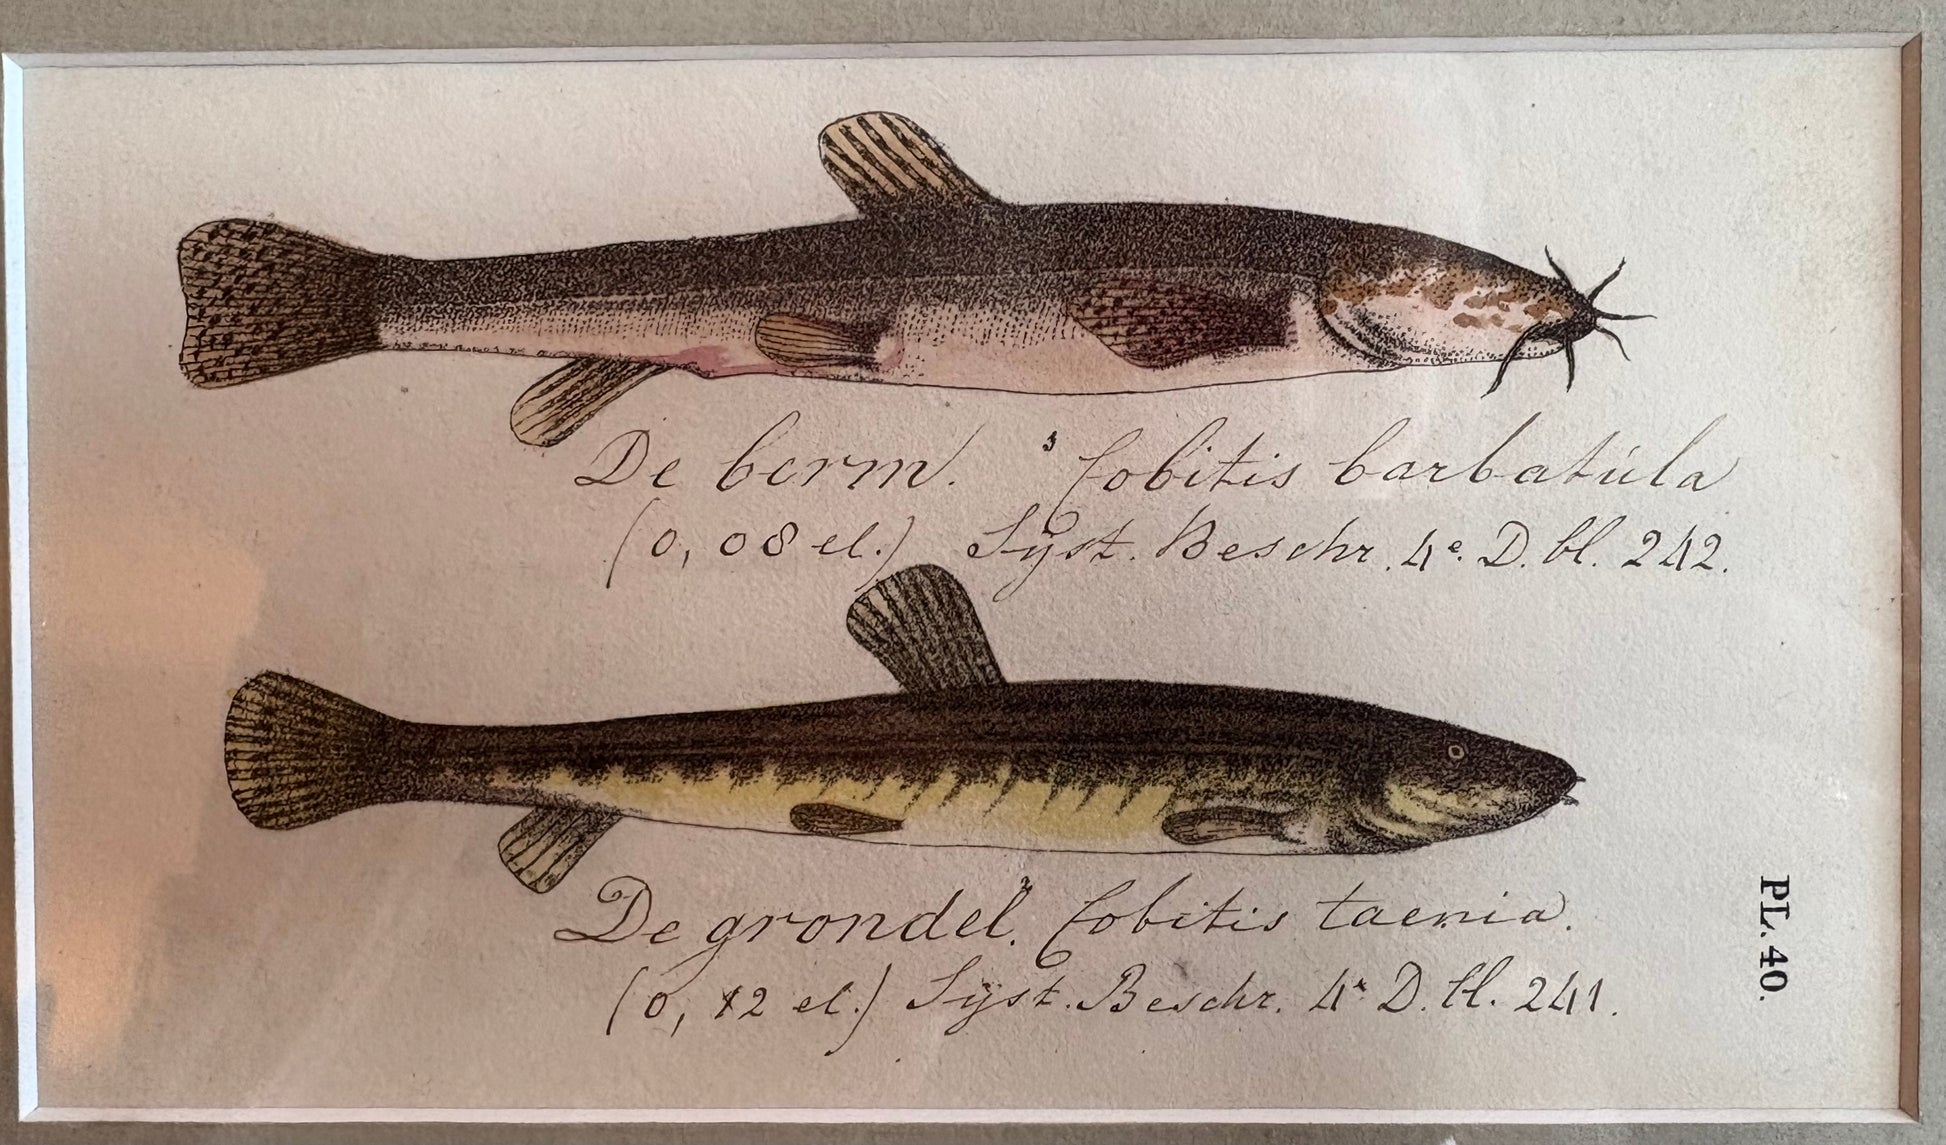 De berm. Cobitis barbatúla
(0, 08 el.) Syst. Beschr. 4e. D. bl. 242.
De grondel. Cobitis taenia.
(0, 12 el.) Syst. Beschr. 4e D. bl. 241.
PL. 40.